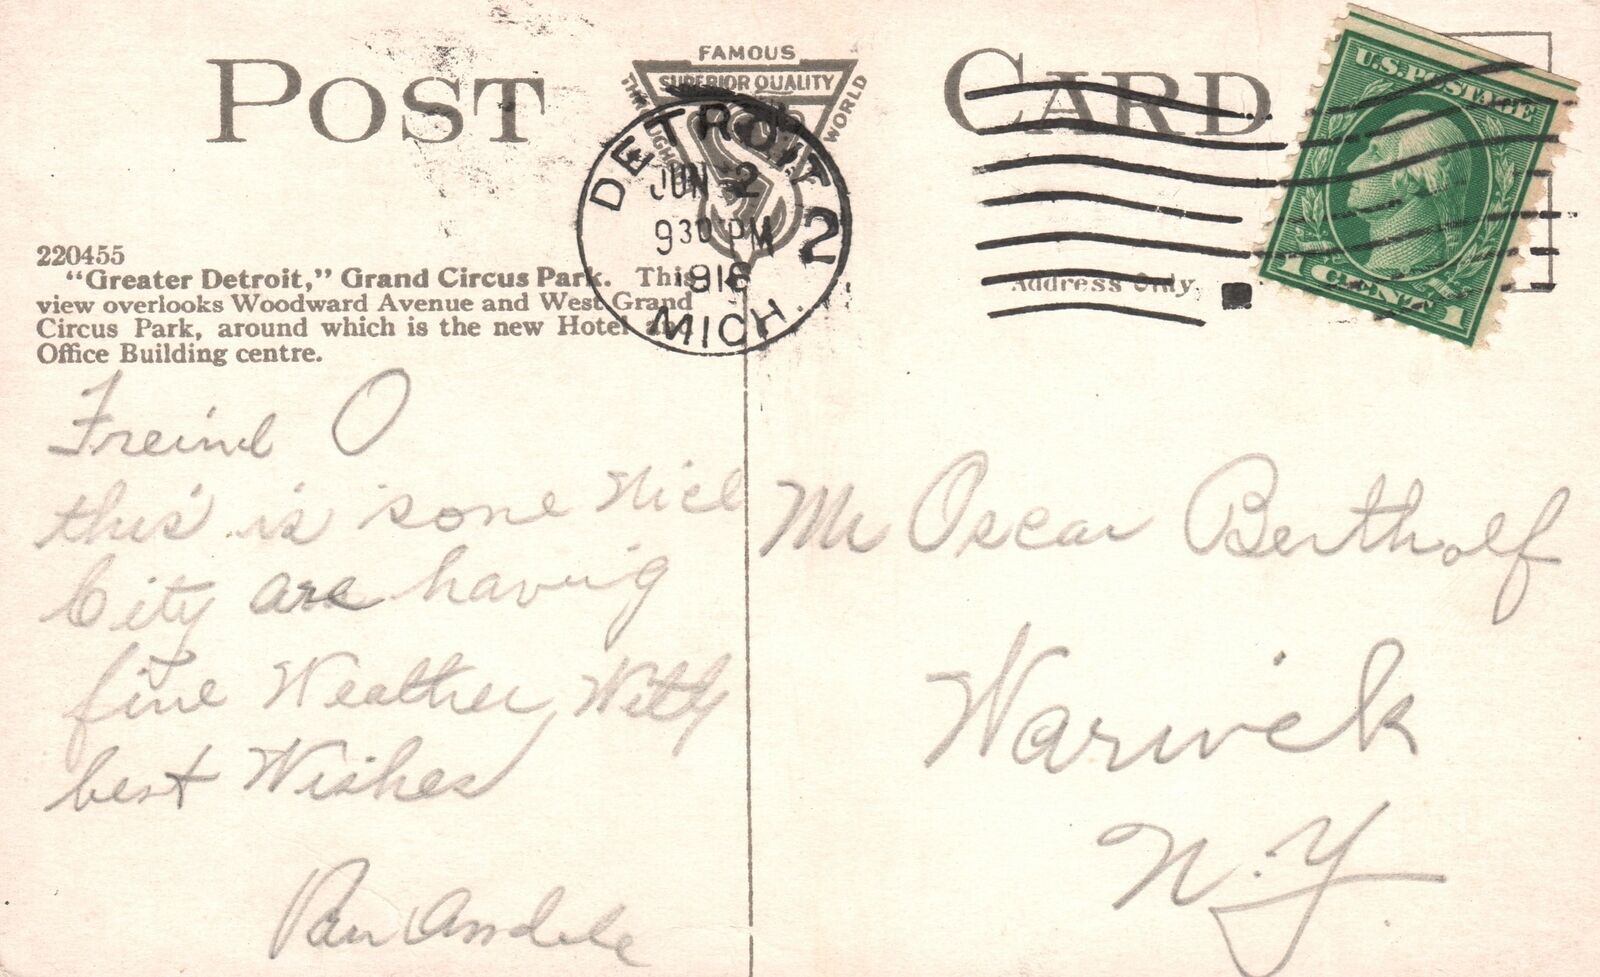 POST CARD
FAMOUS
SUPERIOR QUALITY
THROUGHOUT
WORLD
DETROIT 2
JUN 2
930 PM
1916
MICH.
U.S. POSTAGE
1 CENT 1
Address Only.
220455
"Greater Detroit," Grand Circus Park. This
view overlooks Woodward Avenue and West Grand
Circus Park, around which is the new Hotel and
Office Building centre.
Freind O
this is some Nice
City are having
fine Weather, With
best Wishes
Mr Oscar Bertholf
Warwick
N.Y.